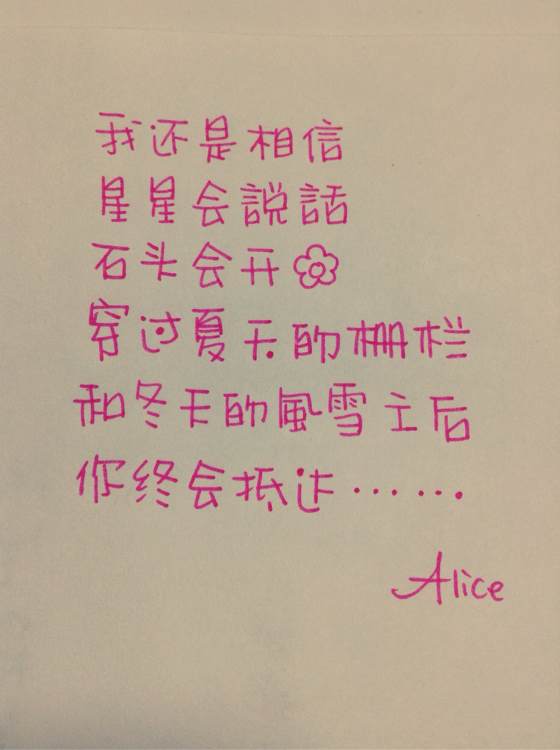 我还是相信
星星会説話
石头会开
穿过夏天的栅栏
和冬天的風雪之后
你终会抵达……
Alice